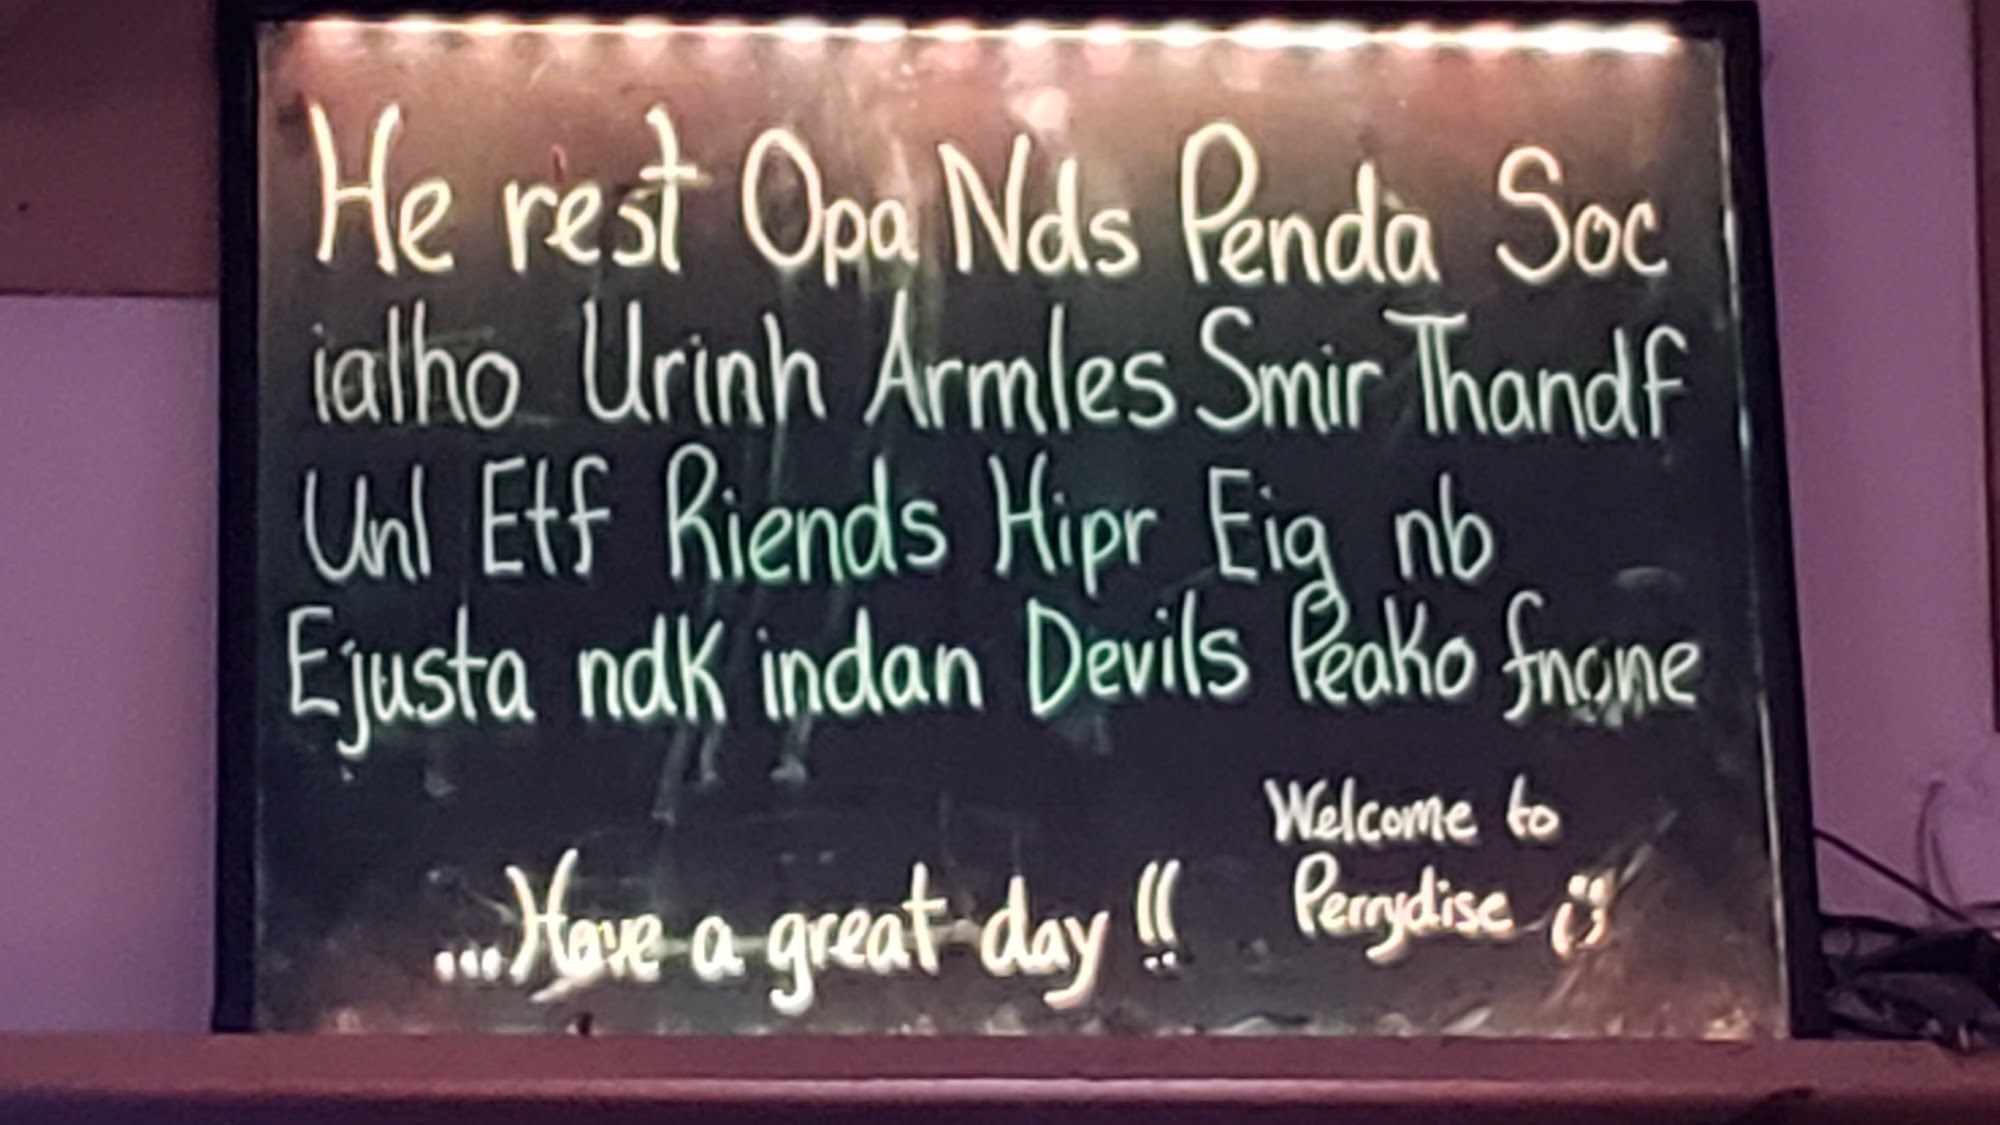 He rest Opa Nds Penda Soc
ialho Urinh Armles Smir Thandf
Unl Etf Riends Hipr Eig nb
Ejusta ndk indan Devils Peako fnone
...Have a great day !!
Welcome to
Perrydise :)